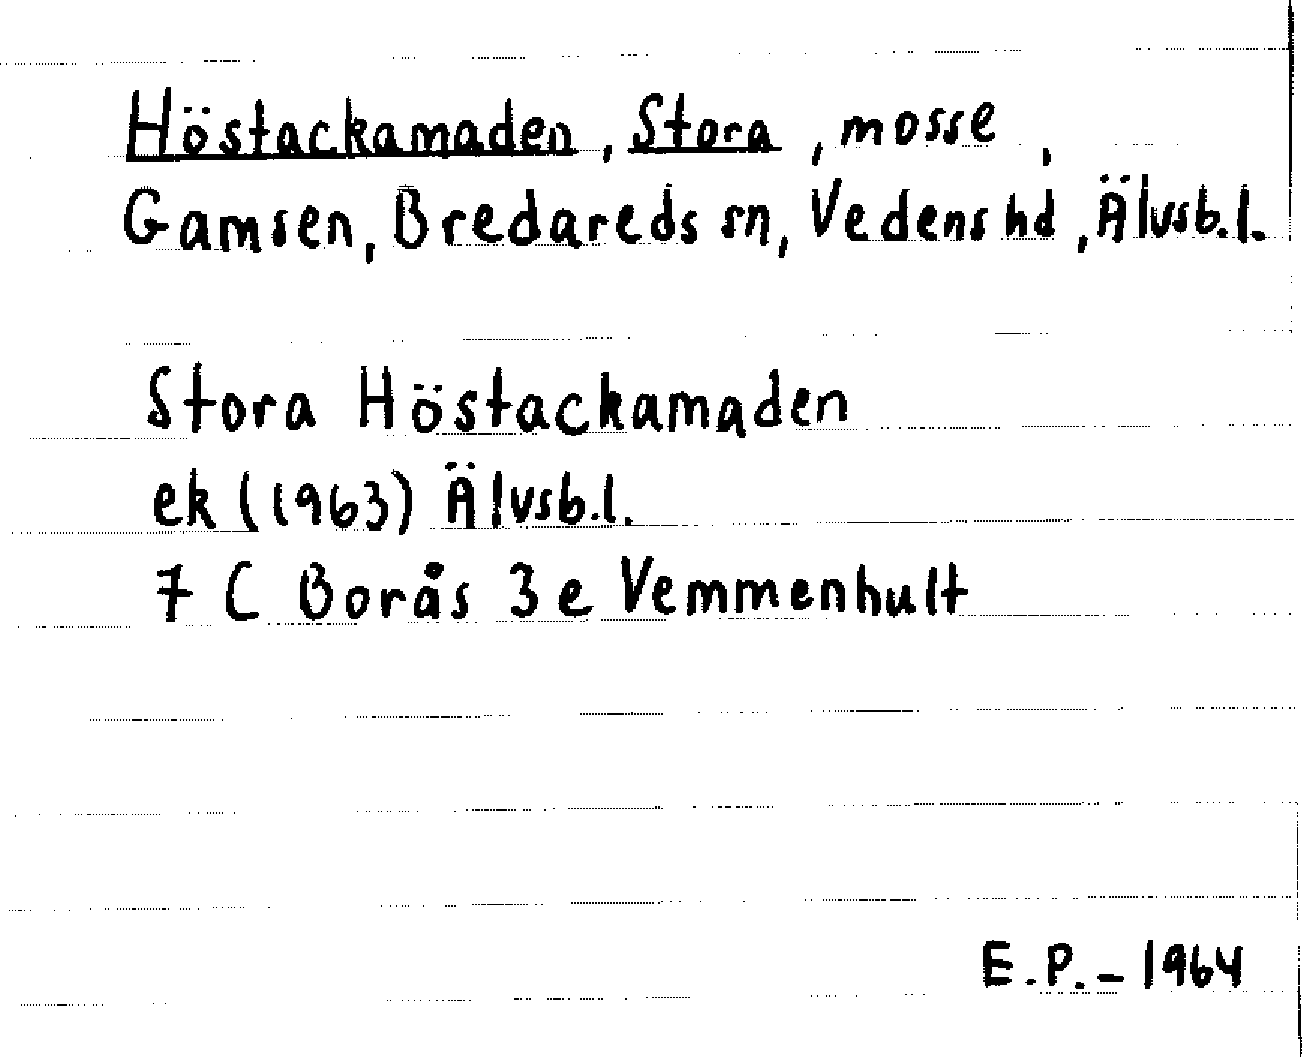 Höstackamaden, Stora, mosse,
Gamsen, Bredareds sn, Vedens hd, Älvsb.l.
Stora Höstackamaden
ek (1963) Älvsb.l.
7 C Borås 3 e Vemmenhult
E.P.-1964